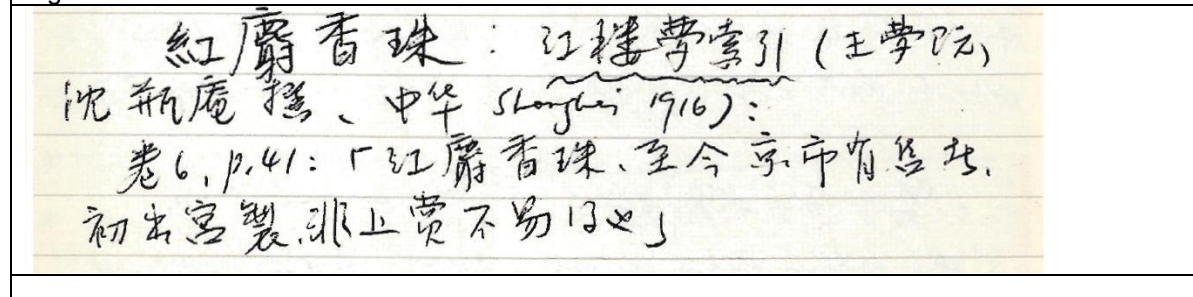 紅麝香珠：红楼夢索引（王夢阮,
沈瓶庵撰、中华 Shanghai 1916）：
卷6, p.41：「红麝香珠、至今京市有售者.
初出宮製,非上赏不易得也」